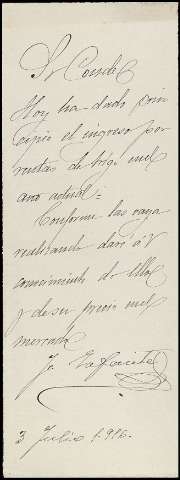 Sr Conde
Hoy ha dado prin
cipio el ingreso por
rentas de trigo en el
año actual=
Conforme las vaya
realizando daré á V
conocimiento de ellas
y de su precio en el
mercado
3 Julio 1.916.